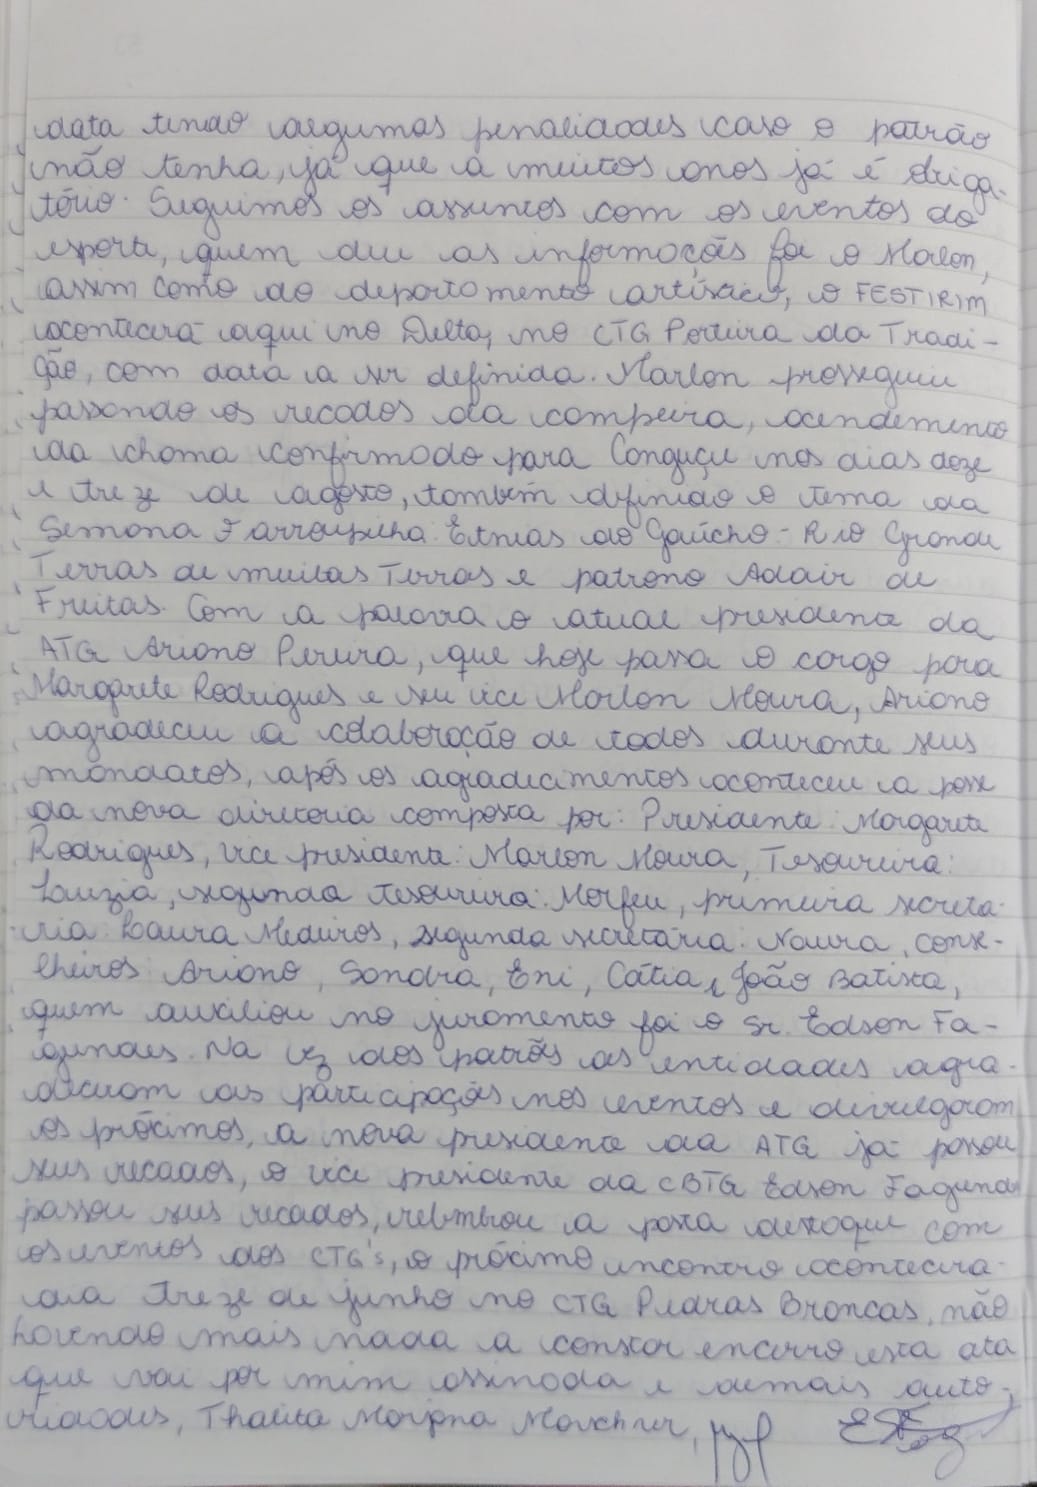 data tendo algumas penalidades caso o patrão
não tenha, já que a muitos anos já é obriga-
tório. Seguimos os assuntos com os eventos do
esporte, quem deu as informações foi o Marlon,
assim como do departamento artístico, o FESTIRIM
acontecerá aqui no Delta, no CTG Porteira da Tradi-
ção, com data a ser definida. Marlon prosseguiu
passando os recados da campeira, acendimento
da chama confirmado para Canguçu nos dias doze
e treze de agosto, também definido o tema da
Semana Farroupilha: Etnias do Gaúcho - Rio Grande
Terras de muitas Terras e patrono Adair de
Freitas. Com a palavra o atual presidente da
ATG Ariano Pereira, que hoje passa o cargo para
Margarete Rodrigues e seu vice Marlon Moura, Ariano
agradeceu a colaboração de todos durante seus
mandatos, após os agradecimentos aconteceu a posse
da nova diretoria composta por: Presidente: Margarete
Rodrigues, vice presidente: Marlon Moura, Tesoureira:
Luzia, segunda tesoureira: Morfeu, primeira secreta-
ria: Laura Medeiros, segunda secretária: Naura, conse-
lheiros: Ariano, Sandra, Eni, Cátia e João Batista,
quem auxiliou no juramento foi o Sr. Edson Fa-
gundes. Na vez dos patrões as entidades agra-
deceram as participações nos eventos e divulgaram
os próximos, a nova presidente da ATG já passou
seus recados, o vice presidente da CBTG Edson Fagundes
passou seus recados, relembrou a pasta destaque com
os eventos dos CTG's, o próximo encontro acontecerá
dia treze de junho no CTG Pedras Brancas, não
havendo mais nada a constar encerro esta ata
que vai por mim assinada e demais auto-
ridades, Thalita Morgna Marchner,